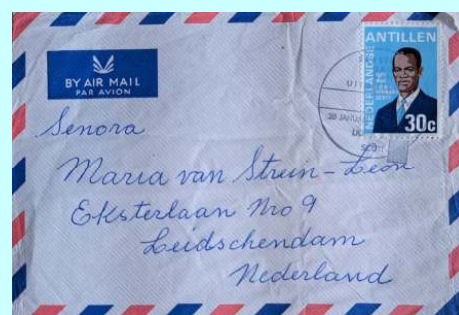 BY AIR MAIL
PAR AVION
NEDERLANDSE
ANTILLEN
30c
Senora
Maria van Strein-Leon
Eksterlaan No 9
Leidschendam
Nederland